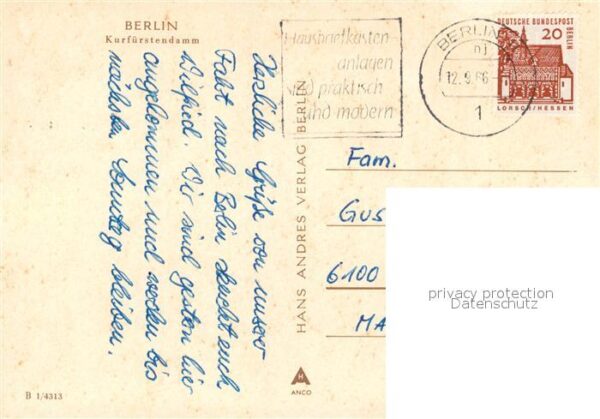 BERLIN
Kurfürstendamm
Herzliche Grüße von unserer
Fahrt nach Berlin sendet euch
Wilfried. Wir sind gestern hier
angekommen und werden bis
nächsten Sonntag bleiben.
B 1/4313
HANS ANDRES VERLAG BERLIN
ANCO
Hausbriefkästen
anlagen
sind praktisch
und modern
BERLIN
12.9.66
1
DEUTSCHE BUNDESPOST
BERLIN
20
LORSCH/HESSEN
Fam.
Gus
6100
MA
privacy protection
Datenschutz